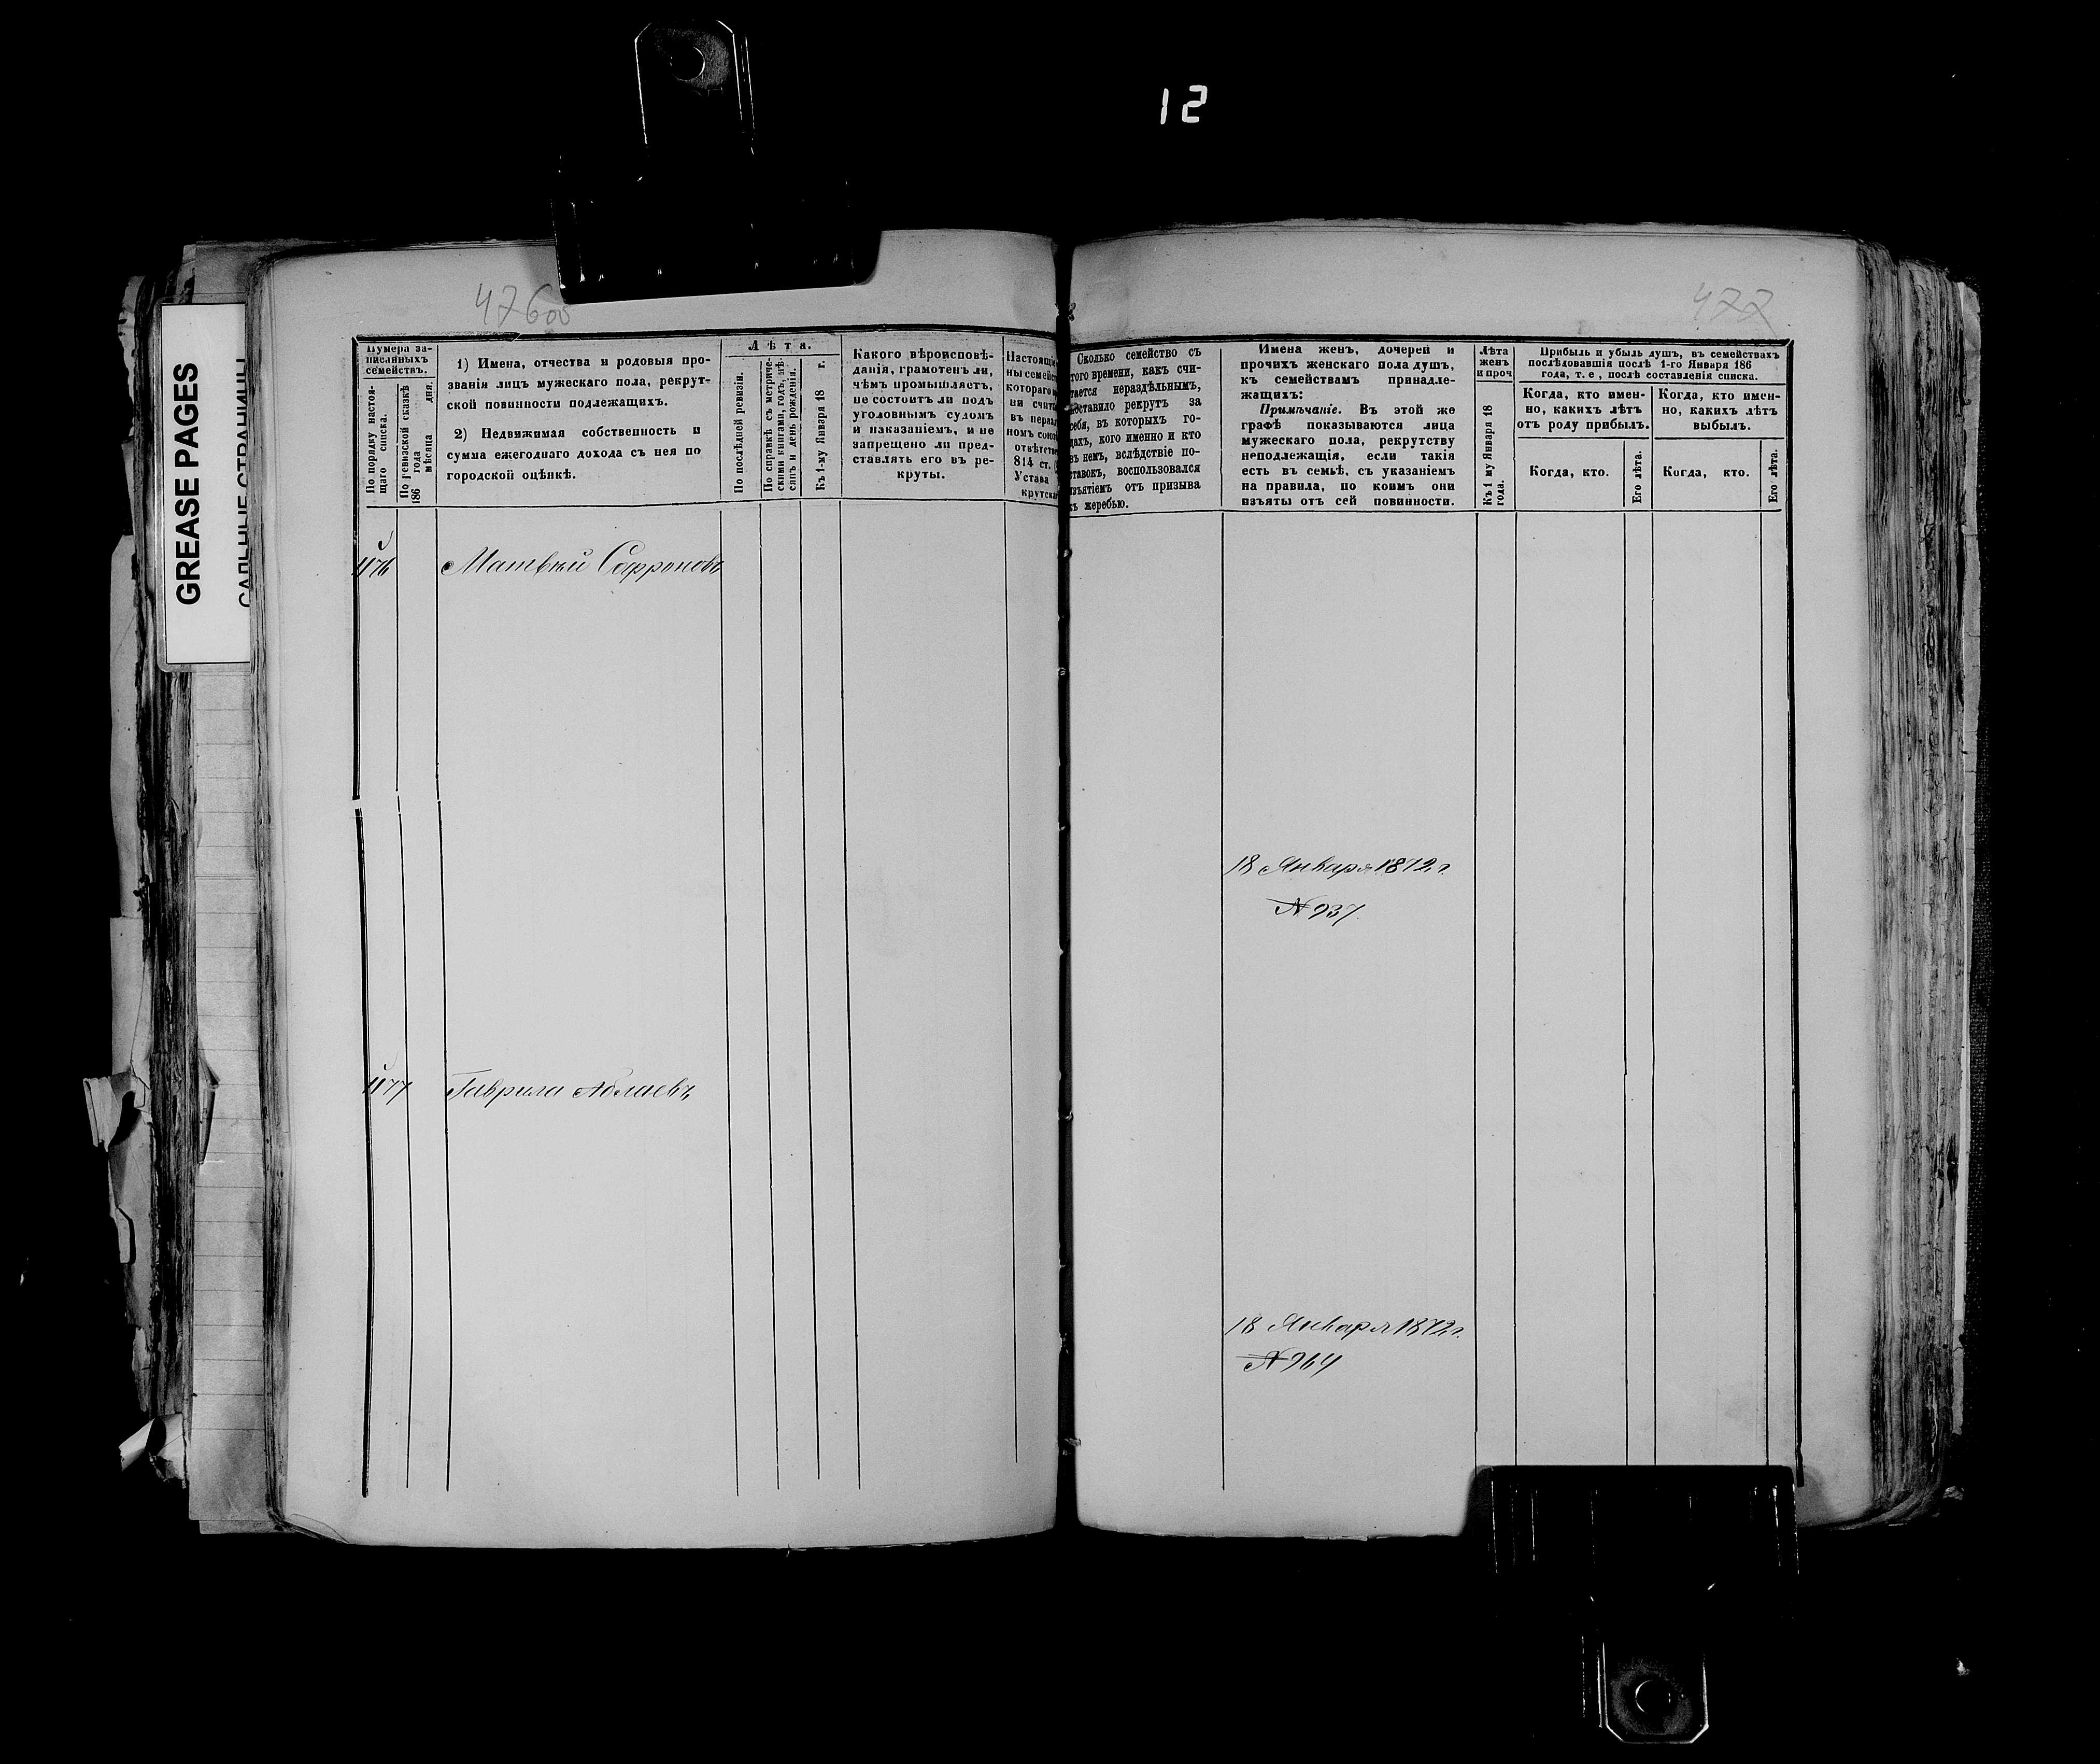 12
GREASE PAGES
476об
477
Нумера за-
писанныхъ
семействъ.
По порядку настоя-
щаго списка.
По ревизской сказкѣ
186 года
мѣсяца дня.
1) Имена, отчества и родовыя про-
званія лицъ мужескаго пола, рекрут-
ской повинности подлежащихъ.
2) Недвижимая собственность и
сумма ежегоднаго дохода съ нея по
городской оцѣнкѣ.
Лѣта.
По послѣдней ревизіи.
По справкѣ съ метриче-
скими книгами, годъ, мѣ-
сяцъ и день рожденія.
Къ 1-му Января 18 г.
Какого вѣроисповѣ-
данія, грамотенъ ли,
чѣмъ промышляетъ,
не состоитъ ли подъ
уголовнымъ судомъ
и наказаніемъ, и не
запрещено ли пред-
ставлять его въ ре-
круты.
Настоящіе
ны семейст
котораго
ни счита
въ нераз
номъ союз
отвѣтстве
814 ст.
Устава
крутска
Сколько семейство съ
того времени, какъ счи-
тается нераздѣльнымъ,
поставило рекрутъ за
себя, въ которыхъ го-
дахъ, кого именно и кто
въ немъ, вслѣдствіе по-
ставокъ, воспользовался
изъятіемъ отъ призыва
къ жеребью.
Имена женъ, дочерей и
прочихъ женскаго пола душъ,
къ семействамъ принадле-
жащихъ:
Примѣчаніе. Въ этой же
графѣ показываются лица
мужескаго пола, рекрутству
неподлежащія, если такія
есть въ семьѣ, съ указаніемъ
на правила, по коимъ они
изъяты отъ сей повинности.
Лѣта
женъ
и проч
Къ 1 му Января 18
года.
Прибыль и убыль душъ, въ семействахъ
послѣдовавшія послѣ 1-го Января 186
года, т. е, послѣ составленія списка.
Когда, кто имен-
но, какихъ лѣтъ
отъ роду прибылъ.
Когда, кто.
Его лѣта.
Когда, кто имен-
но, какихъ лѣтъ
выбылъ.
Когда, кто.
Его лѣта.
1176
Матвѣй Софроновъ
18 Января 1872 г.
№ 937
1177
Гаврила Аблаевъ
18 Января 1872 г.
№ 964